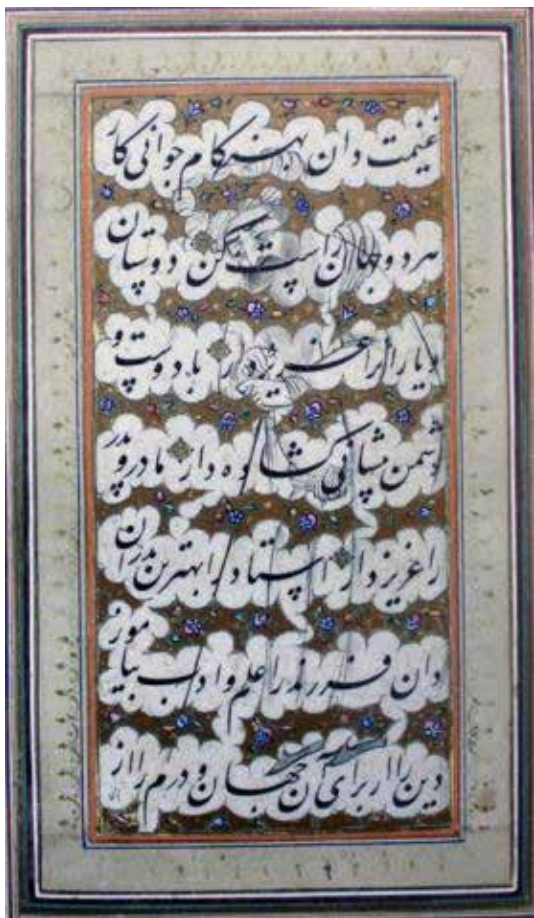 غنیمت دان بهنگام جوانی کار
هر دو جهان راست کن دوستان
و یاران را عزیز دار با دوست و
دشمن پیشانی گشاده دار مادر و پدر
را عزیز دار استاد را بهترین پدران
دان فرزند را علم و ادب بیاموز
دین را از برای آن جهان و درم را از